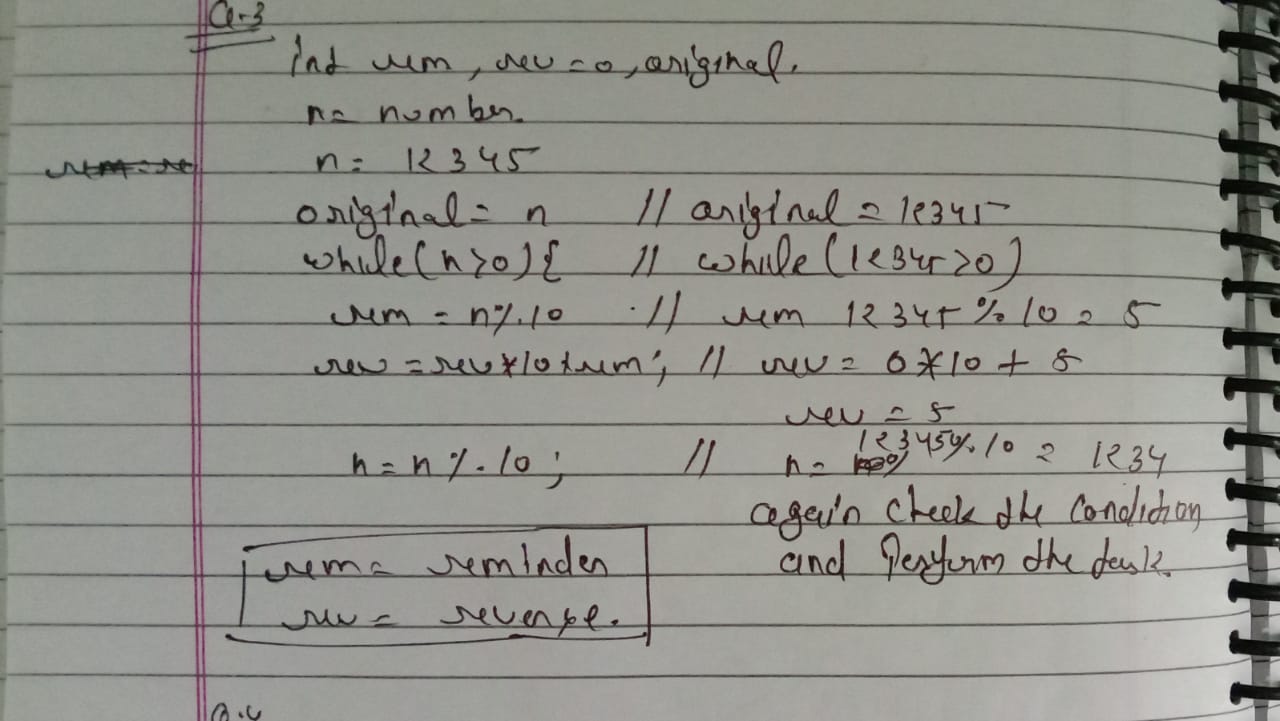 Q-3
int rem, rev=0, original.
n= number.
n= 12345
original= n // original = 12345
while(n>0){ // while(12345>0)
rem = n%10 // rem 12345%10= 5
rev=rev*10+rem; // rev= 0*10 + 5
rev = 5
n=n%10; // n= 12345%10 = 1234
again check the condition
and perform the task.
rem= reminder
rev= reverse.
Q.4